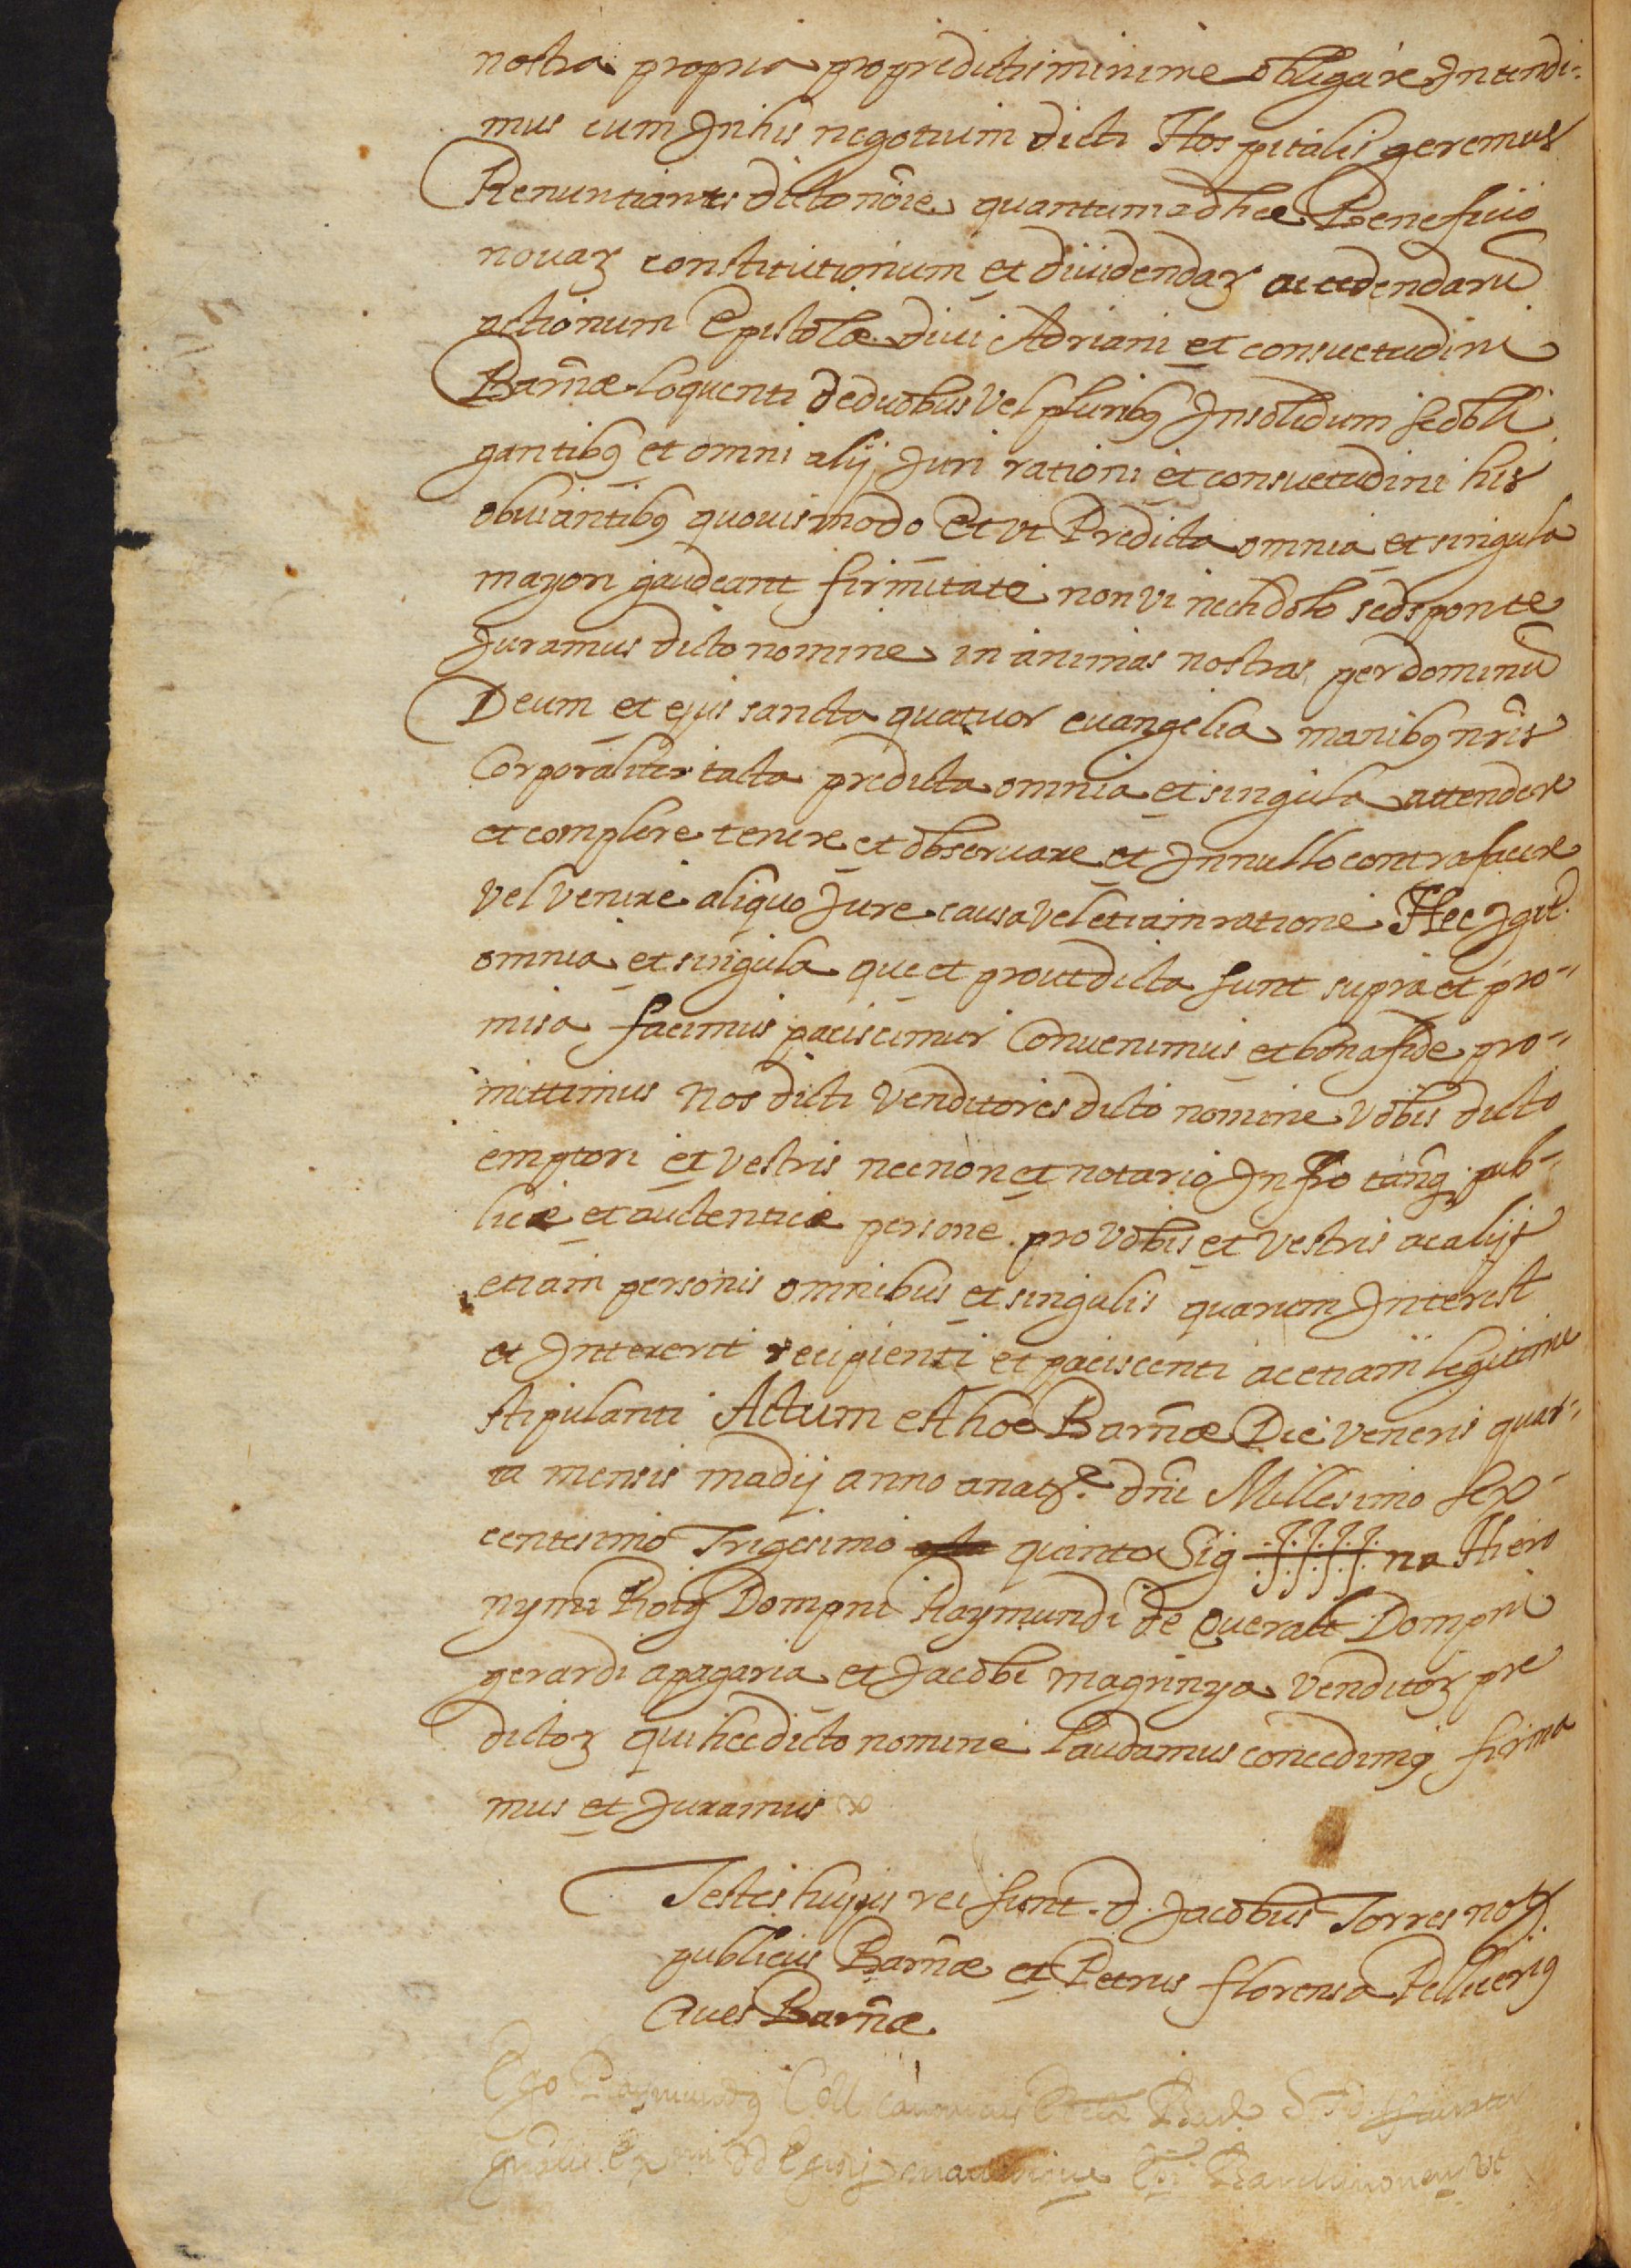 nostra propria pro predictis minime obligare Intendi-
mus cum In his negotium dicti Hospitalis geremus
Renuntiantes dicto nõie quantum ad hec Beneficio
nouaꝝ constitutionum et diuidendaꝝ ac cedendarũ
actionum Epistolæ diui Adriani et consuetudini
Barñæ loquenti de duobus vel pluribꝰ Insolidum se obli
gantibꝰ et omni alij Juri rationi et consuetudini his
obuiantibꝰ quouismodo Et vt Predicta omnia et singula
mayori gaudeant firmitate non vi nech dolo sed sponte
Juramus dicto nomine in animas nostras per dominũ
Deum et ejus sancta quatuor euangelia manibꝰ nr̃is
Corporaliter tacta predicta omnia et singula attendere
et complere tenere et obseruare et In nullo contrafacere
vel venire aliquo Jure causa vel etiam ratione Hec Igit.
omnia et singula que et prout dicta sunt supra et pro-
misa facimus paciscimur Conuenimus et bona fide pro-
mittimus nos dicti venditores dicto nomine vobis dicto
emptori et vestris nec non et notario Infro tanq̃ pub-
licæ et auctenticæ persone pro vobis et vestris ac alijs
etiam personis omnibus et singulis quarum Interest
et Intererit recipienti et paciscenti ac etiam legitime
stipulanti Actum est hoc Barñæ Die veneris quar-
ta mensis madij anno a natꝰ. dñi Millesimo sex-
centesimo Trigesimo quinto Sig na Hiero
nymi Roig Dompni Raymundi de Queralt Dompni
gerardi apagaria et Jacobi magrinya venditoꝝ pre
dictoꝝ qui hec dicto nomine laudamus concedimꝰ firma
mus et Juramus
Testes hujus rei sunt. d. Jacobus Torres notꝰ.
publicus Barñæ et Petrus florensa Pelliceriꝰ
Ciues Barñæ
Ego Raymundꝰ Coll canonicus